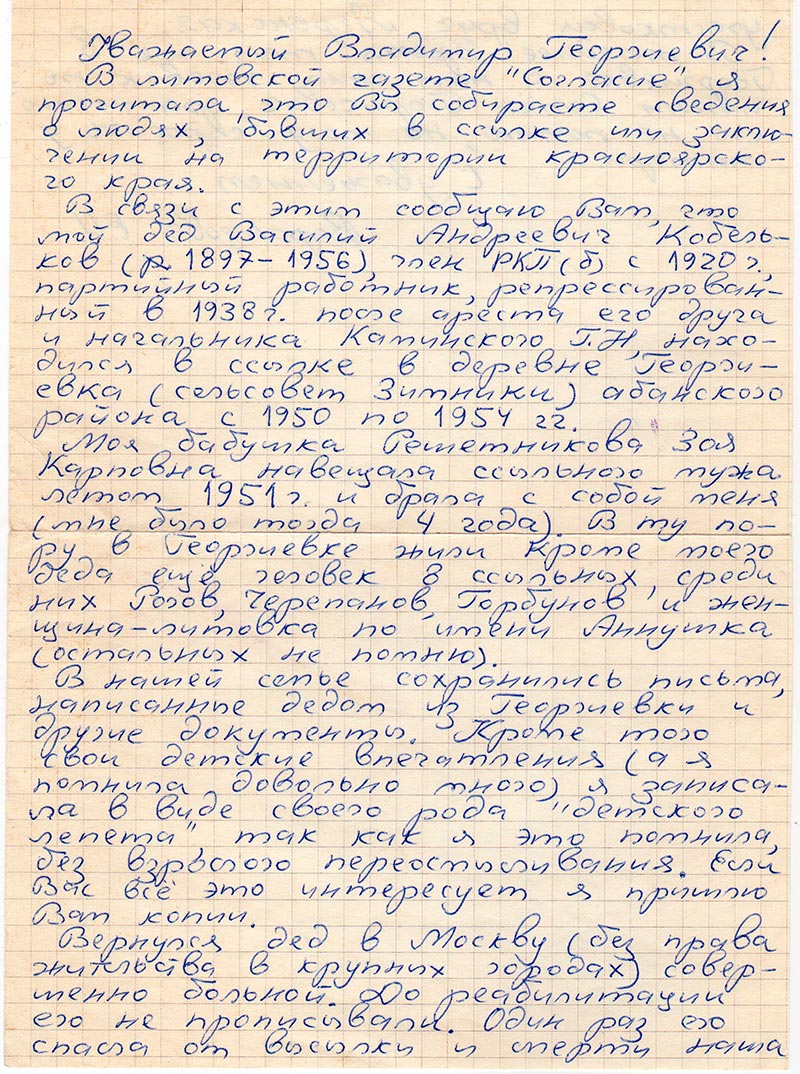 Уважаемый Владимир Георгиевич!
В литовской газете "Согласие" я
прочитала, что Вы собираете сведения
о людях, бывших в ссылке или заклю-
чении на территории красноярско-
го края.
В связи с этим сообщаю Вам, что
мой дед Василий Андреевич Кобель-
ков (1897-1956), член РКП(б) с 1920 г.,
партийный работник, репрессирован-
ный в 1938 г. после ареста его друга
и начальника Каминского Г.Н., нахо-
дился в ссылке в деревне Георги-
евка (сельсовет Зимники) абанского
района с 1950 по 1954 гг.
Моя бабушка Решетникова Зоя
Карповна навещала ссыльного мужа
летом 1951 г. и брала с собой меня
(мне было тогда 4 года). В ту по-
ру в Георгиевке жили кроме моего
деда ещё человек 8 ссыльных, среди
них Рогов, Черепанов, Горбунов и жен-
щина-литовка по имени Аннушка
(остальных не помню).
В нашей семье сохранились письма,
написанные дедом из Георгиевки и
другие документы. Кроме того
свои детские впечатления (а я
помнила довольно много) я записа-
ла в виде своего рода "детского
лепета", так как я это помнила,
без взрослого переосмысливания. Если
Вас всё это интересует я пришлю
Вам копии.
Вернулся дед в Москву (без права
жительства в крупных городах) совер-
шенно больной. До реабилитации
его не прописывали. Один раз его
спасла от высылки и смерти наша